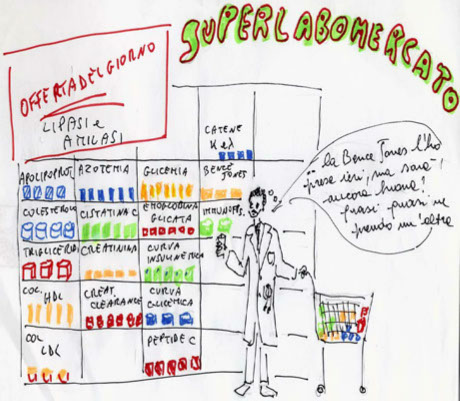 SUPERLABOMERCATO
OFFERTA DEL GIORNO
LIPASI e
AMILASI
CATENE
K e λ
APOLIPOPROT.
AZOTEMIA
GLICEMIA
BENCE
JONES
COLESTEROLO
CISTATINA C
EMOGLOBINA
GLICATA
IMMUNOFIS.
TRIGLICERIDI
CREATININA
CURVA
INSULINICA
COL.
HDL
CREAT.
CLEARANCE
CURVA
GLICEMICA
COL
LDL
PEPTIDE C
la Bence Jones l'ho
presa ieri, ma sarà
ancora buona?
quasi quasi ne
prendo un'altra